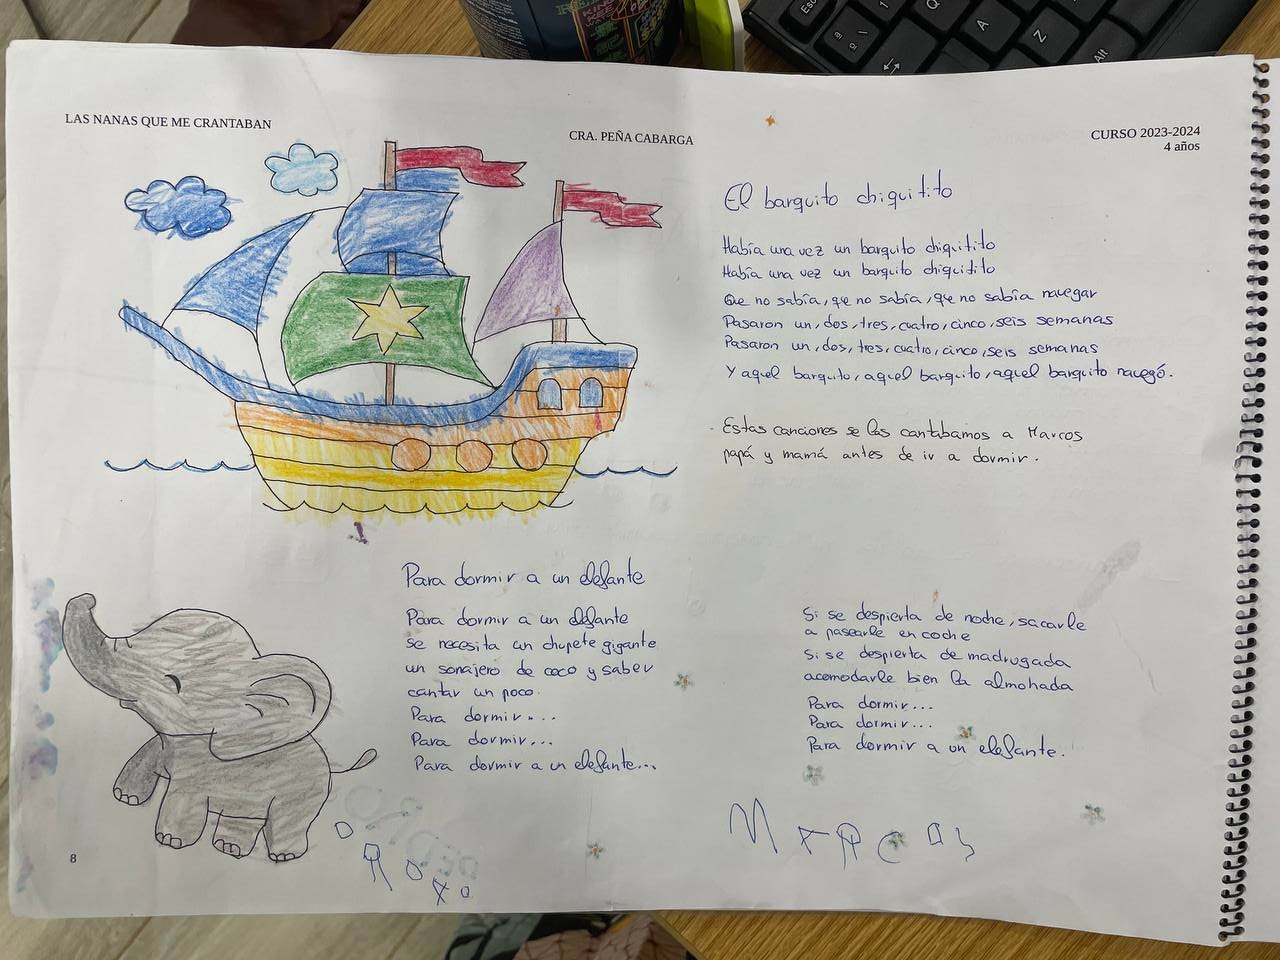 LAS NANAS QUE ME CRANTABAN
CRA. PEÑA CABARGA
CURSO 2023-2024
4 años
El barquito chiquitito
Había una vez un barquito chiquitito
Había una vez un barquito chiquitito
Que no sabía, que no sabía, que no sabía navegar
Pasaron un, dos, tres, cuatro, cinco, seis semanas
Pasaron un, dos, tres, cuatro, cinco, seis semanas
Y aquel barquito, aquel barquito, aquel barquito navegó.
- Estas canciones se las cantabamos a Marcos
papá y mamá antes de ir a dormir.
Para dormir a un elefante
Para dormir a un elefante
se necesita un chupete gigante
un sonajero de coco y saber
cantar un poco.
Para dormir...
Para dormir...
Para dormir a un elefante...
Si se despierta de noche, sacarle
a pasearle en coche
Si se despierta de madrugada
acomodarle bien la almohada
Para dormir...
Para dormir...
Para dormir a un elefante.
MARCOS
8
Esc
Q
A
Z
Alt